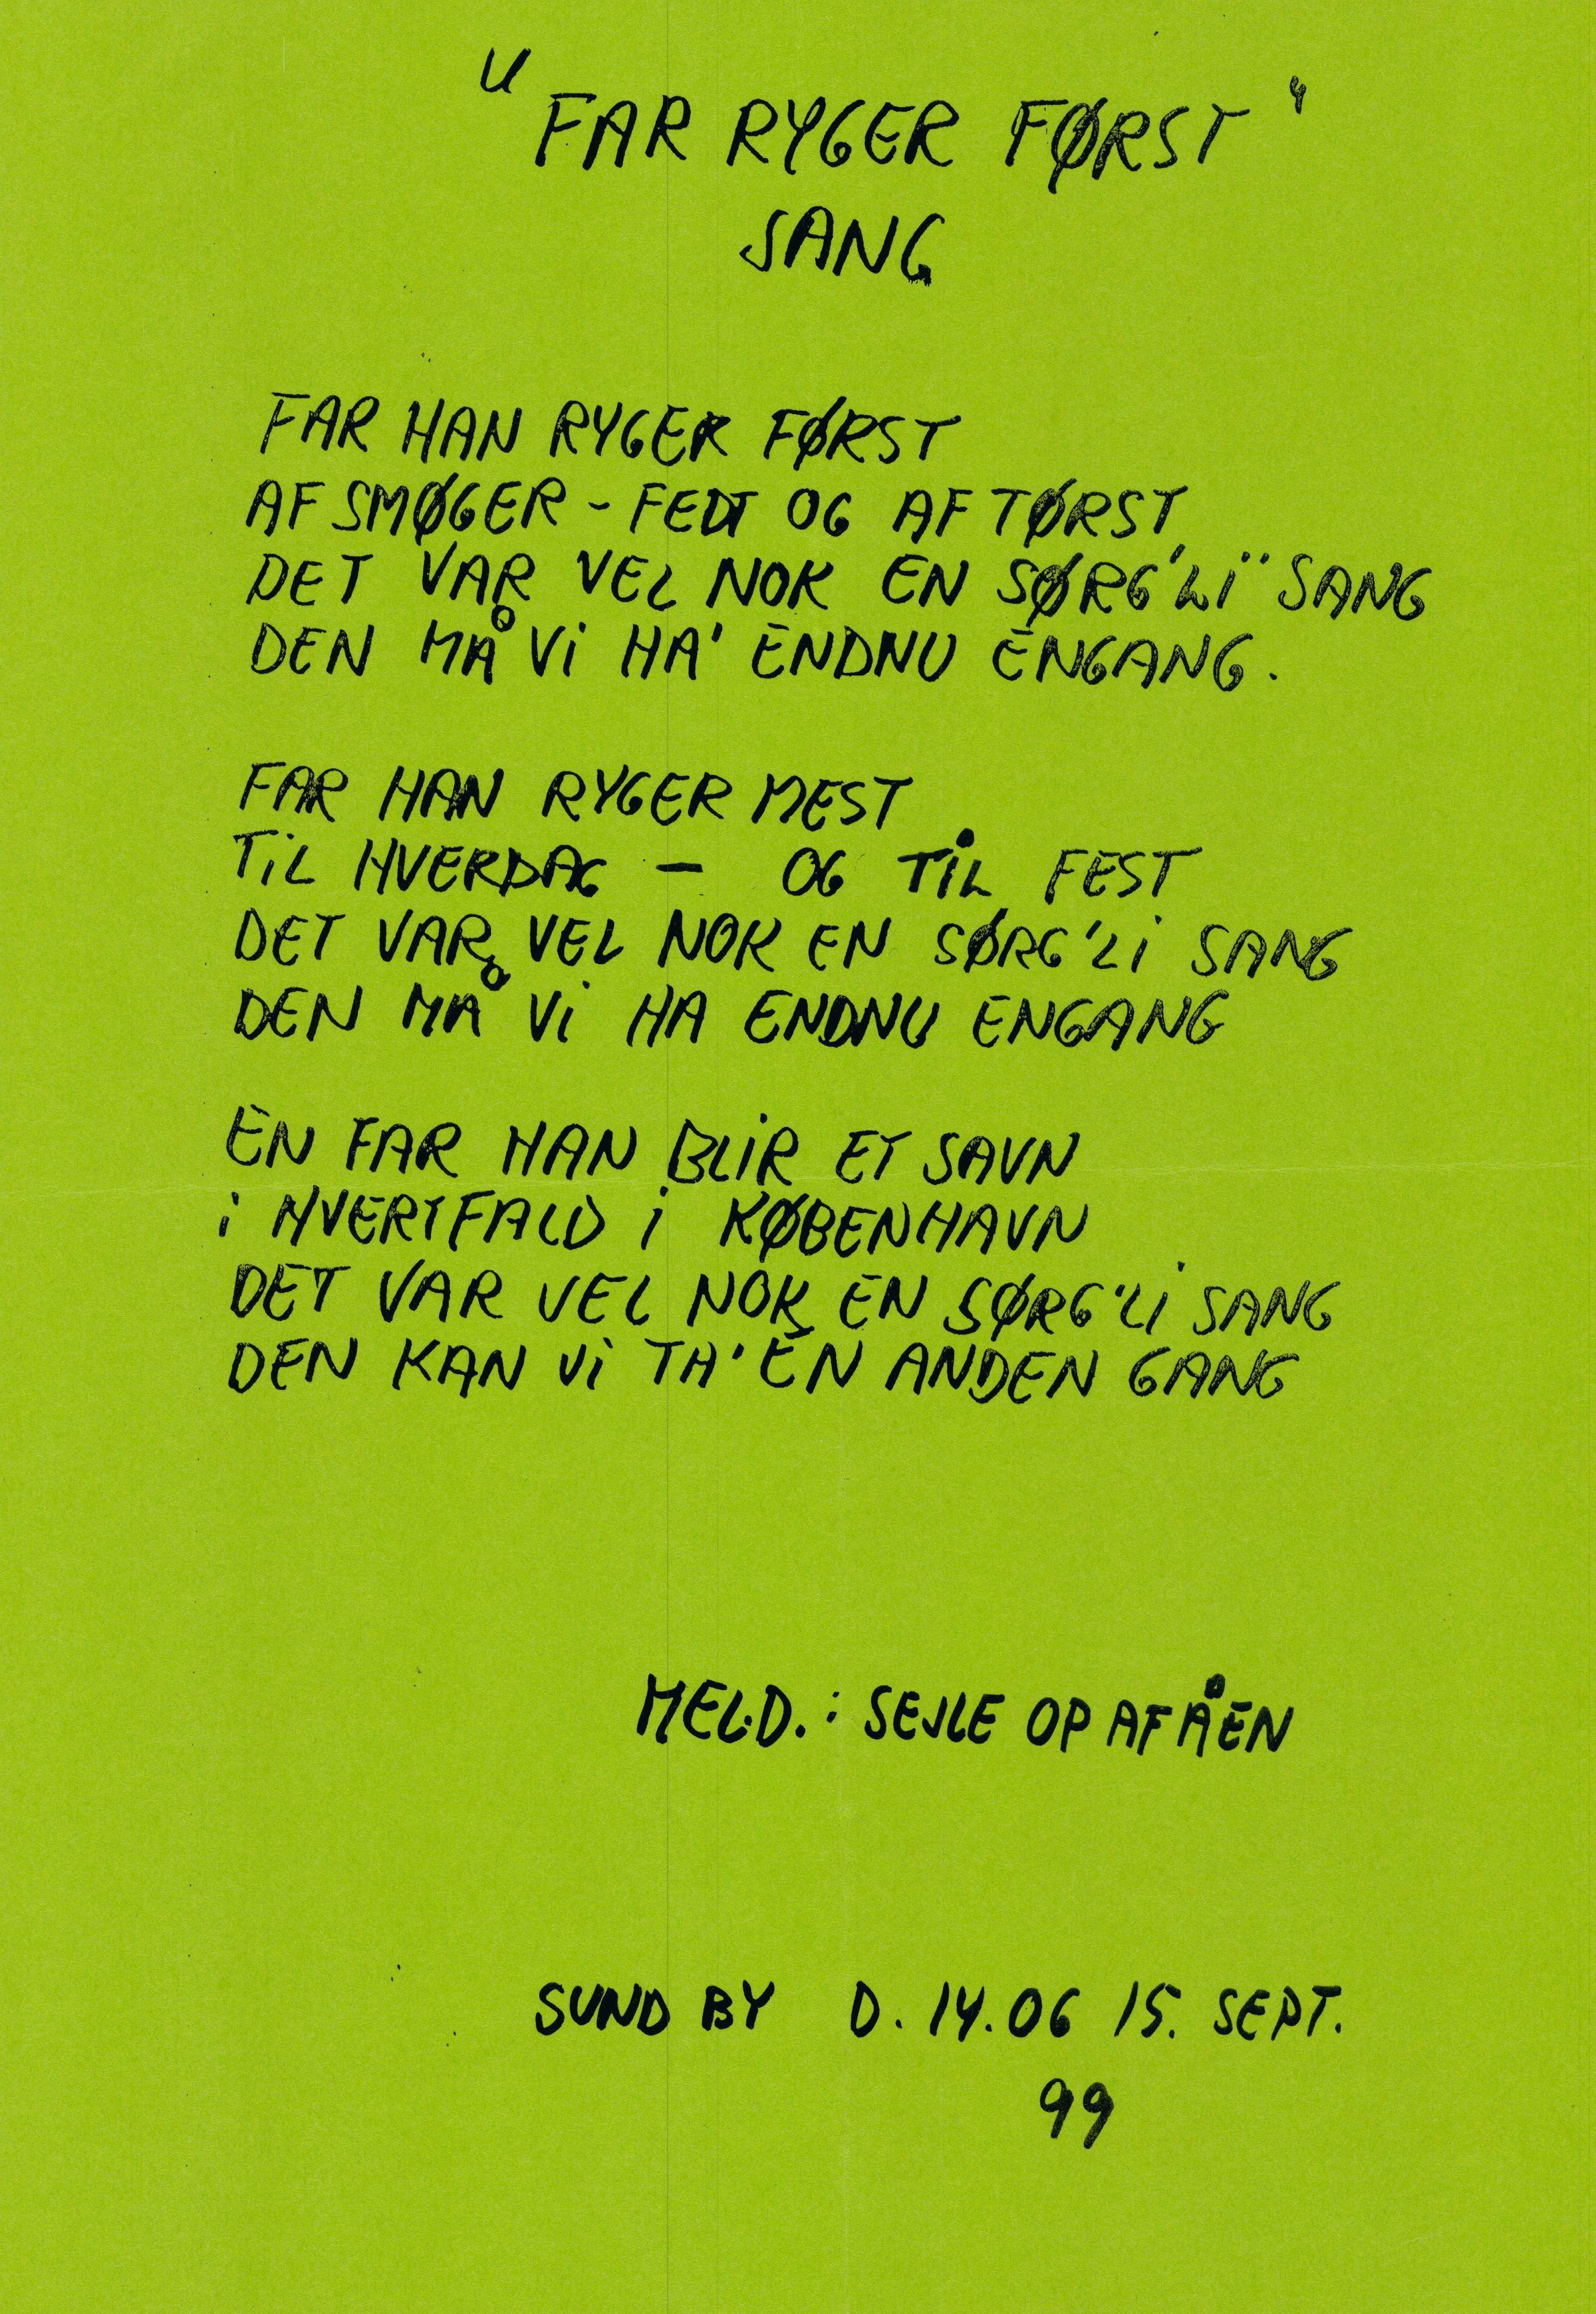 "FAR RYGER FØRST"
SANG
FAR HAN RYGER FØRST
AF SMØGER - FEDT OG AF TØRST
DET VAR VEL NOK EN SØRG'LI" SANG
DEN MÅ VI HA' ENDNU ENGANG.
FAR HAN RYGER MEST
TIL HVERDAG - OG TIL FEST
DET VAR VEL NOK EN SØRG'LI SANG
DEN MÅ VI HA ENDNU ENGANG
EN FAR HAN BLIR ET SAVN
i HVERTFALD i KØBENHAVN
DET VAR VEL NOK EN SØRG'LI SANG
DEN KAN VI TA' EN ANDEN GANG
MELD.: SEJLE OP AF ÅEN
SUND BY D. 14.06 15. SEPT.
99